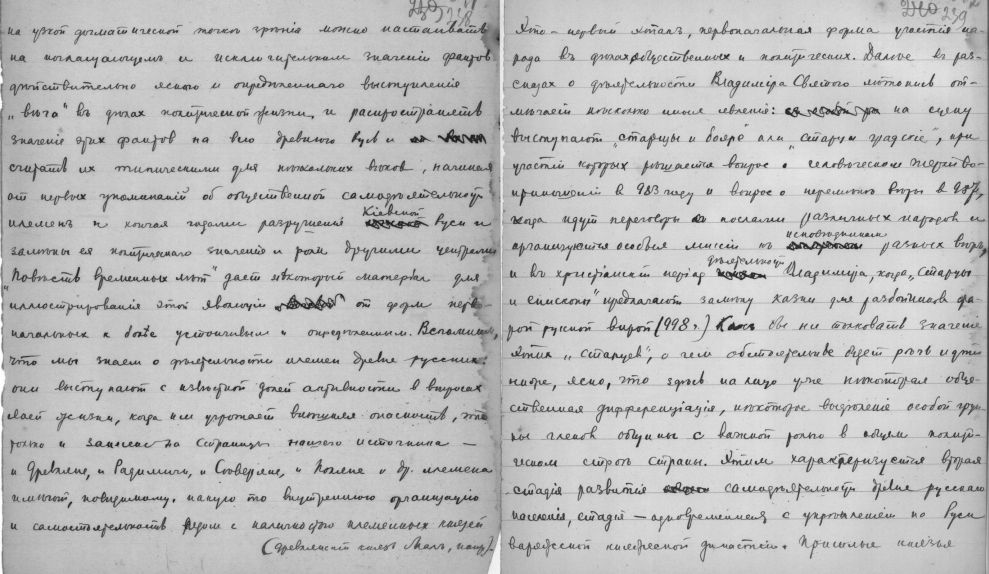 238
на узкой догматической точке зрѣнія можно настаивать
на исключительном значеніи фактов
дѣйствительно яснаго и опредѣленнаго выступленія
„вѣча" въ дѣлах политической жизни, и распространять
значеніе этих фактов на всю древнюю Русь и
считать их типическими для нѣскольких вѣков, начиная
от первых упоминаній об общественной самодѣятельности
племенъ и кончая годами разрушенія Кіевской Руси и
замѣны ея политическаго значенія и роли другими центрами
„Повѣсть временных лѣт" дает нѣкоторый матеріал для
иллюстрированія этой эволюціи от форм перво-
начальных к болѣе устойчивым и опредѣленным. Вспомним,
что мы знаем о дѣятельности племен древне-русских:
они выступают с извѣстной долей активности в вопросах
своей жизни, когда им угрожает внѣшняя опасность, это
только и занесено на страницы нашего источника —
и Древляне, и Радимичи, и Сѣверяне, и Поляне и др. племена
имѣют, повидимому, какую то внутреннюю организацію
и самостоятельность рядом с наличностью племенных князей
(древлянскій князь Малъ, напр.).
239
Это — первый этапъ, первоначальная форма участія на-
рода въ дѣлах общественных и политических. Далѣе в раз-
сказах о дѣятельности Владиміра Святого лѣтопись от-
мѣчает нѣсколько иныя явленія: на сцену
выступают „старцы и бояре" или „старцы градскіе", при
участіи которых рѣшается вопрос о человѣческом жертво-
приношеніи в 983 году и вопрос о перемѣнѣ вѣры в 987,
когда идут переговоры с послами различных народов и
организуются особыя миссіи къ исповѣдникам разных вѣръ,
и въ христіанскій період дѣятельности Владиміра, когда „старцы
и епископы" предлагают замѣну казни для разбойников ста-
рой русской вирой (998 г.) Как бы ни толковать значеніе
этих „старцев", о чем обстоятельнѣе будет рѣчь идти
ниже, ясно, что здѣсь на лицо уже нѣкоторая обще-
ственная дифференціація, нѣкоторое выдѣленіе особой груп-
пы членов общины с важной ролью в общем полити-
ческом строѣ страны. Этим характеризуется вторая
стадія развитія самодѣятельности древне русскаго
населенія, стадія — одновременная с укрѣпленіем на Руси
варяжской княжеской династіи. Пришлые князья